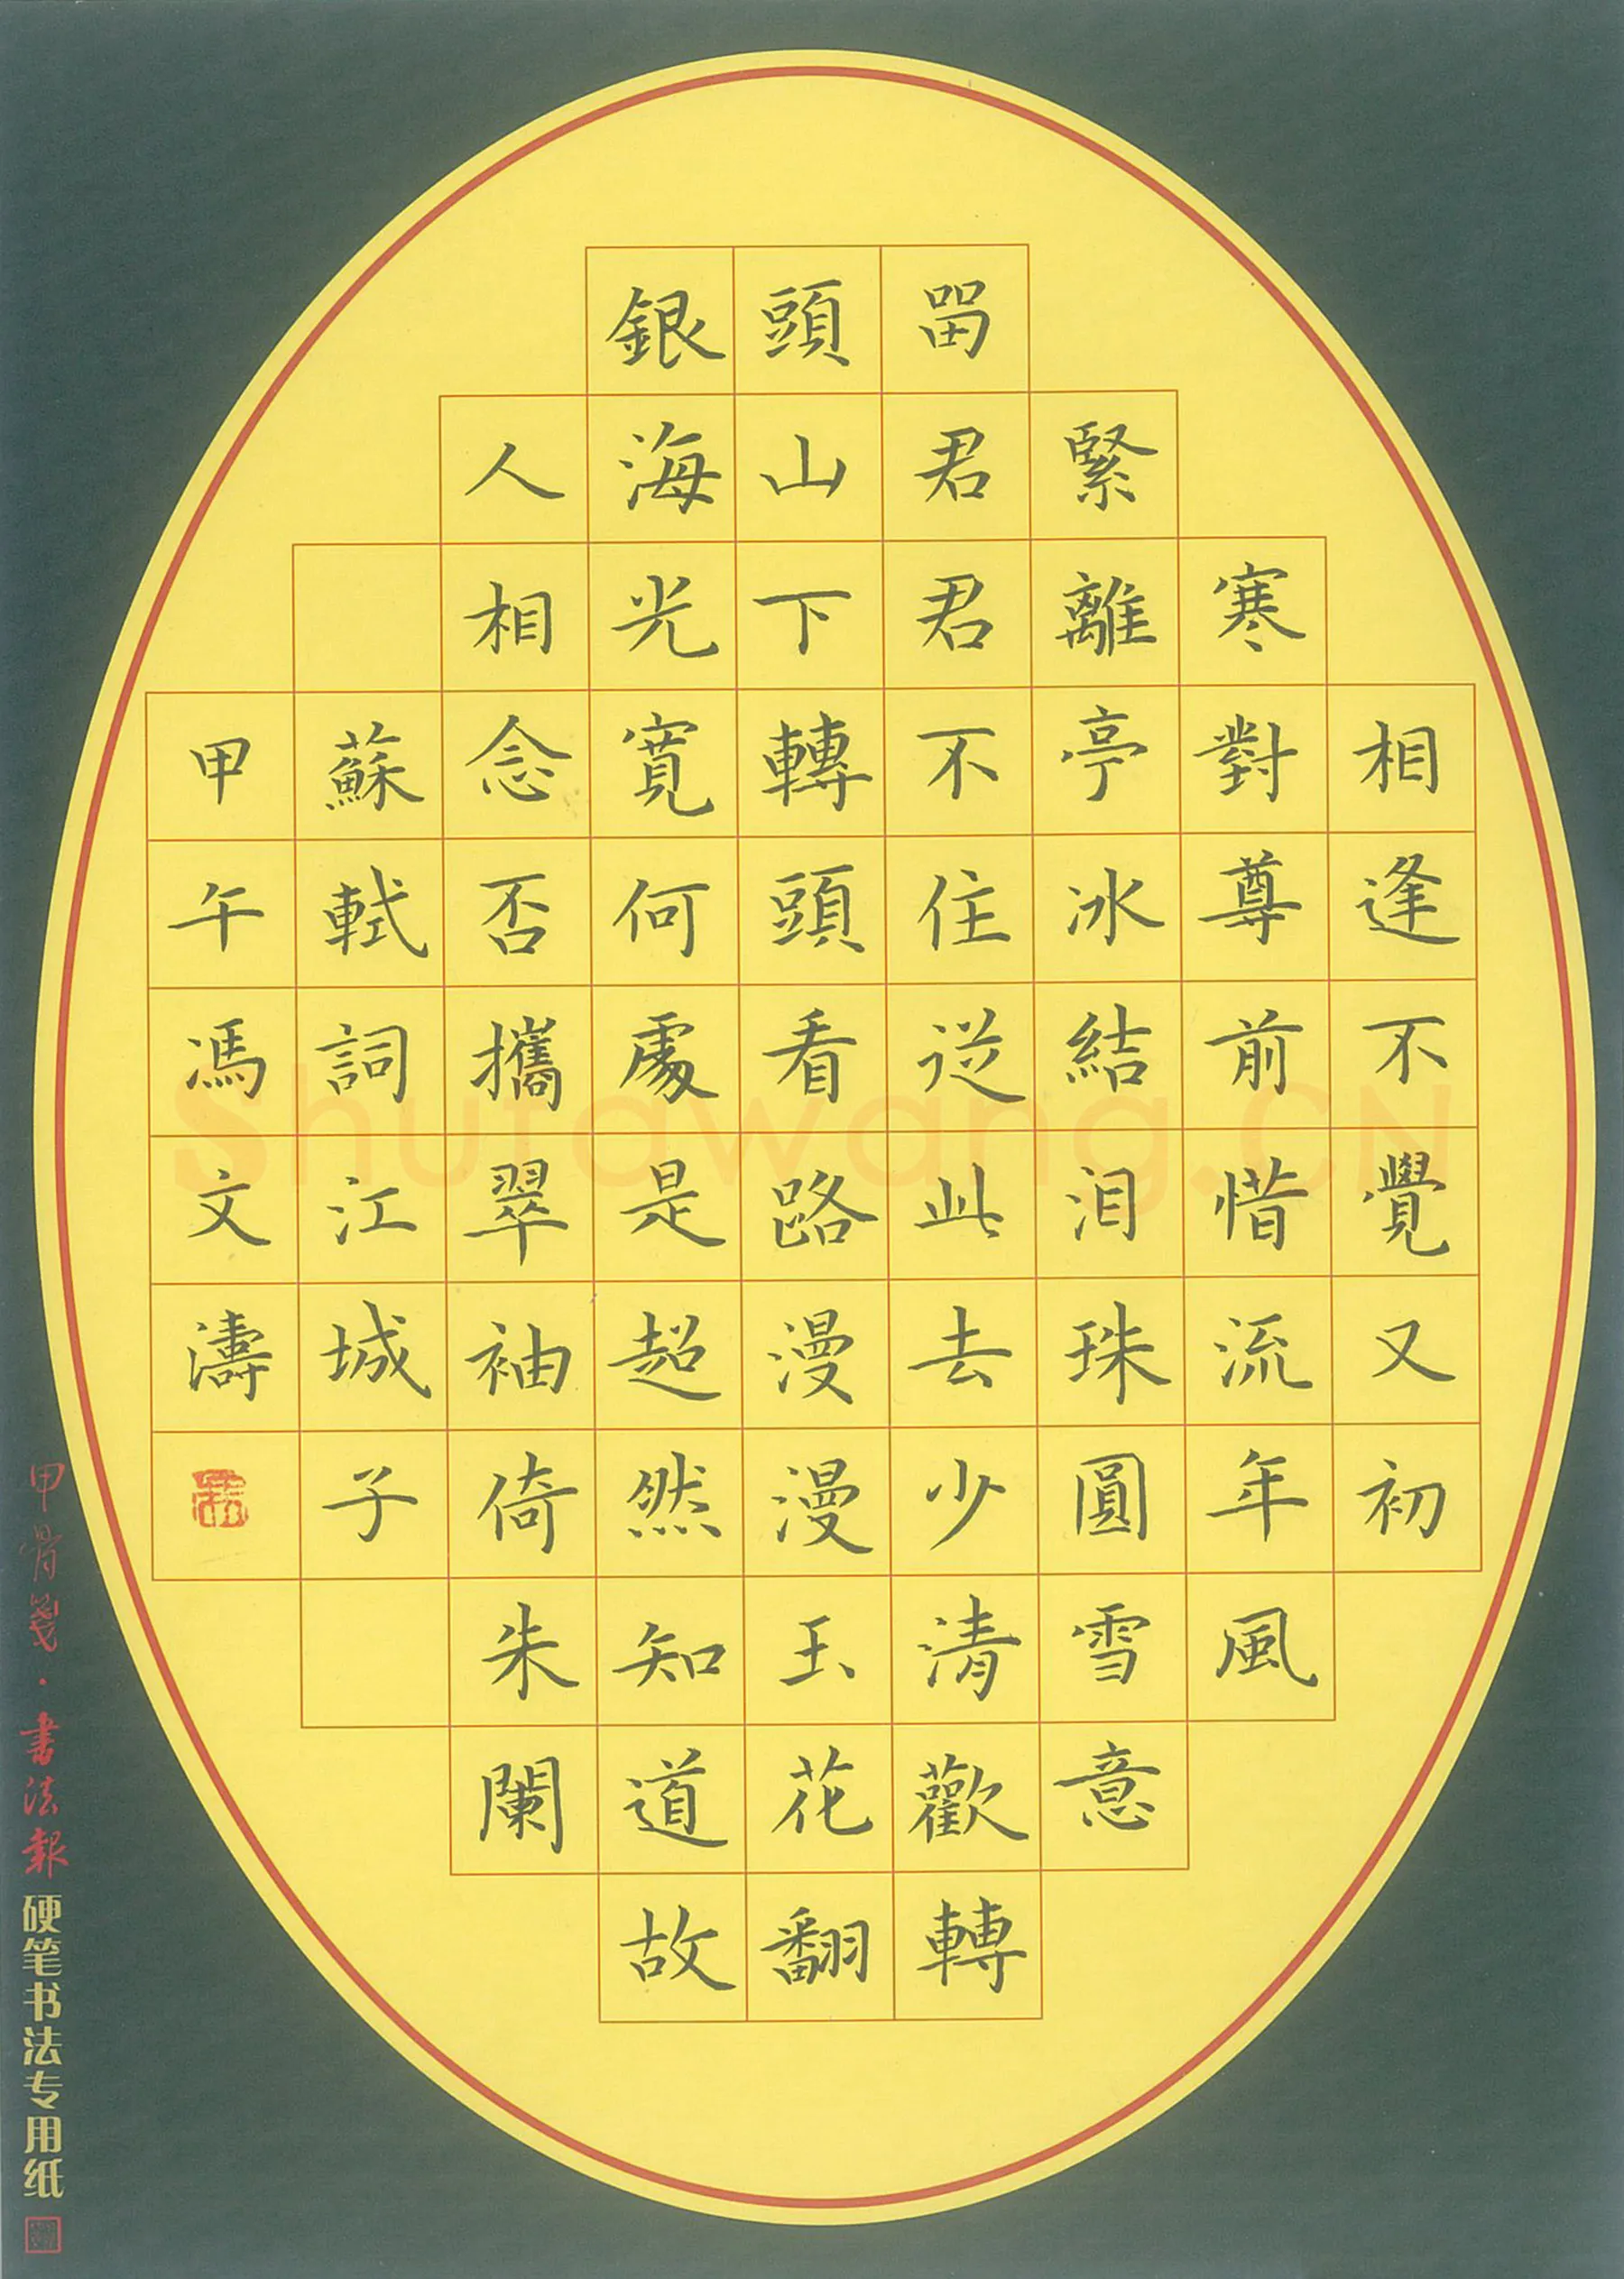 相逢不覺又初
寒對尊前惜流年風
緊離亭冰結泪珠圓雪意
留君君不住從此去少清歡轉
頭山下轉頭看路漫漫玉花翻
銀海光寬何處是超然知道故
人相念否攜翠袖倚朱闌
蘇軾詞江城子
甲午馮文濤
甲骨箋·書法報硬笔书法专用纸
shufawang.CN